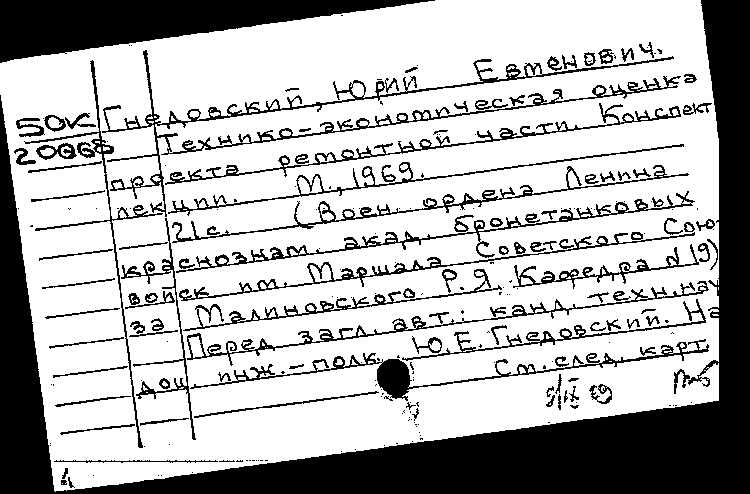 50К Гнедовский, Юрий Евменович.
20668 Технико-экономическая оценка
проекта ремонтной части. Конспект
лекции. М., 1969.
21с. (Воен. ордена Ленина
краснознам. акад. бронетанковых
войск им. Маршала Советского Сою-
за Малиновского Р.Я. Кафедра №19)
Перед загл. авт.: канд. техн. нау
доц. инж.-полк. Ю.Е. Гнедовский. На
См. след. карт.